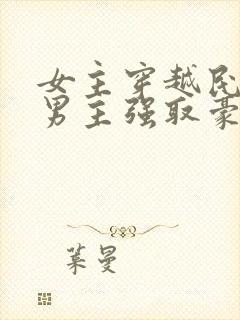 女主穿越民
男主强取豪